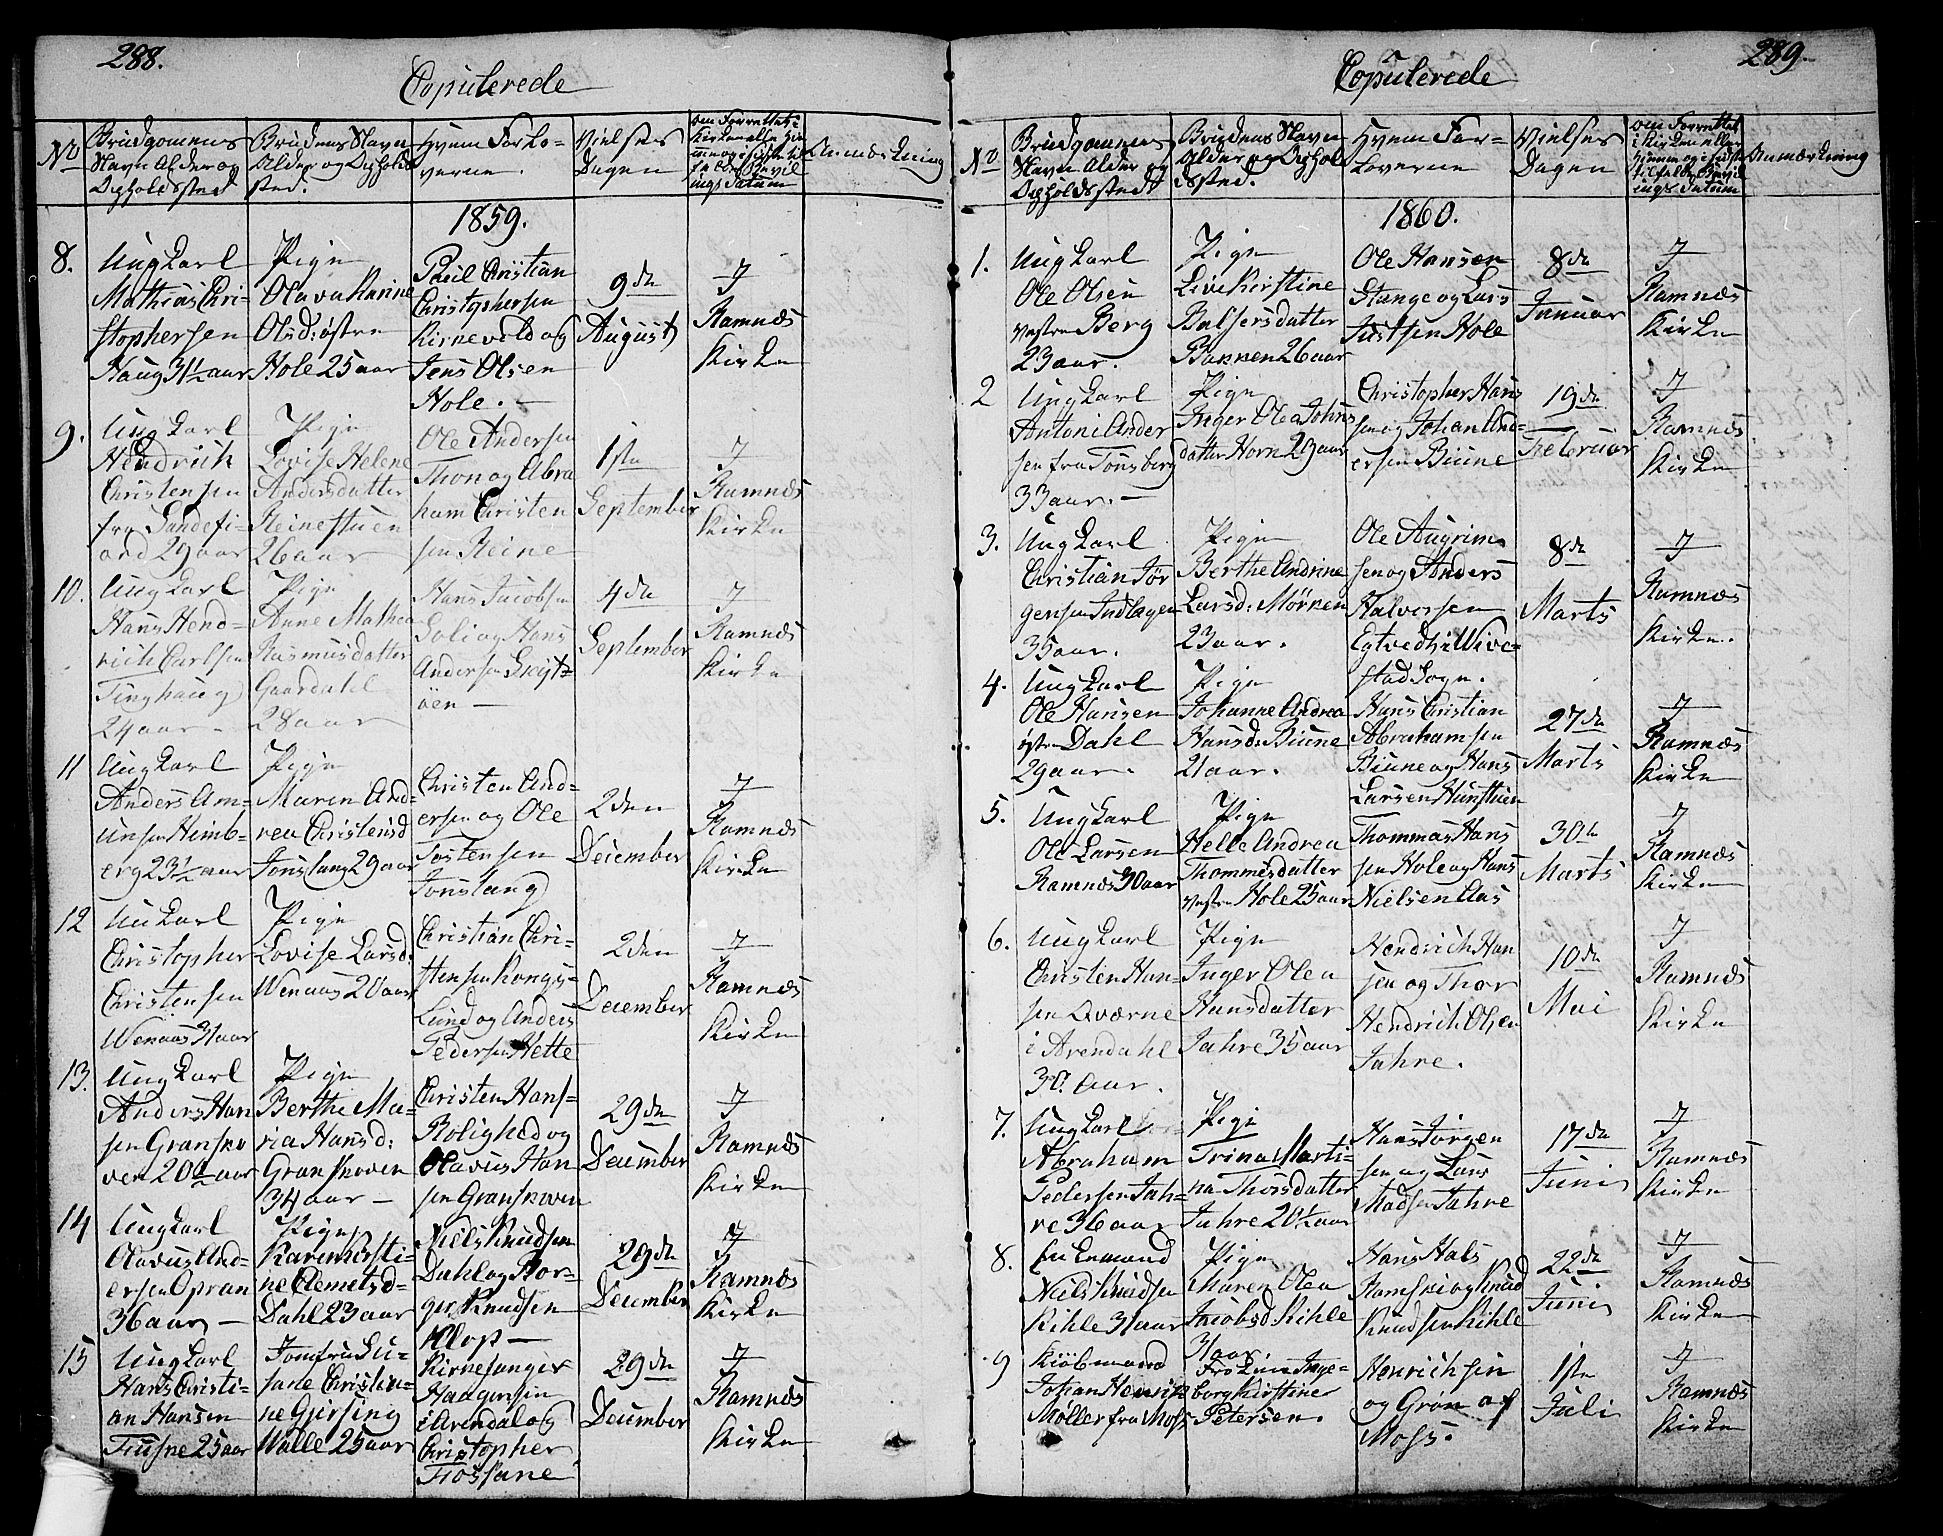 288.
Copulerede
No
Brudgomens
Navn Alder og
Opholdssted
Brudens Navn
Alder og Opholds
sted.
Hvem Forlo-
verne.
Vielses
Dagen
om Forrettet i
Kirken eller
Anmærkning
1859.
8.
Ungkarl
Mathias Chri-
stophersen
Haug 31½ aar
Pige
Olava Karine
Olsd: østre
Hole 25 aar
Paul Christian
Christophersen
Kirkevold og
Jens Olsen
Hole. —
9de
August
I
Ramnæs
Kirke
9.
Ungkarl
Hendrich
Christensen
fra Sandefi-
ord 29 aar
Pige
Lovise Helene
Andersdatter
Reinestuen
26 aar
Ole Andersen
Thon og Abra
ham Christen
sen Reine
1ste
September
I
Ramnæs
Kirke
10.
Ungkarl
Hans Hend-
rich Carlsen
Tinghaug
24 aar.
Pige
Anne Mathea
Rasmusdatter
Gaardahl
28 aar
Hans Jacobsen
Solie og Hans
Andersen
øen —
4de
September
I
Ramnæs
Kirke
11
Ungkarl
Anders Am-
unsen Heimb-
erg 23½ aar
Pige
Maren And-
rea Christensd
Jonslang 29 aar
Christen And-
ersen og Ole
Tostensen
Jonslang
2den
December
I
Ramnæs
Kirke
12
Ungkarl
Christopher
Christensen
Wenaas 31 aar
Pige
Lovise Larsd:
Wenaas 20 aar
Christian Chri-
stensen Kongs-
Lund og Anders
Pedersen Klette
2den
December
I
Ramnæs
Kirke
13.
Ungkarl
Anders Han
sen Gransko
ven 20 aar
Pige
Berthe Ma-
ria Hansd:
Granskoven
34 aar —
Christen Hans-
Rolighed og
Olavus Han
sen Granskoven
29de
December
I
Ramnæs
Kirke
14
Ungkarl
Olavus And-
ersen Opran
36 aar —
Pige
Karen Kisti-
ne Clemetsd-
Dahl 23 aar
Niels Knudsen
Dahl og Bor-
ger Knudsen
Klop —
29de
December
I
Ramnæs
Kirke
15
Ungkarl
Hans Christi-
an Hansen
Fusne 25 aar
Jomfru Su-
sane Christia-
ne Gjersing
Walle 25 aar
Kirkesanger
Haagensen
i Arendal og
Christopher
Fossane
29de
December
I
Ramnæs
Kirke
289.
Copulerede
No
Brudgomens
Navn Alder og
Opholdssted
Brudens Navn
Alder og Ophol
dssted.
Hvem For-
loverne
Vielses
Dagen
om Forrettet
i Kirken eller
Anmærkning
1860.
1.
Ungkarl
Ole Olsen
vestre Berg
23 aar.
Pige
Live Kirstine
Balzersdatter
Bakken 26 aar
Ole Hansen
Stange og Lars
Justsen Hole
8de
Januar
I
Ramnæs
Kirke
2
Ungkarl
Antoni Ander
sen fra Tønsberg
33 aar. —
Pige
Inger Olea Johns
datter Horn 29 aar
Christopher Hans
sen og Johan And-
ersen Biune
19de
Februar
I
Ramnæs
Kirke
3.
Ungkarl
Christian Jør
gensen Indlagen
35 aar.
Pige
Berthe Andrine
Larsd: Mørken
23 aar.
Ole Augrim-
sen og Anders
Halversen
Egtvedt i Wive-
stad Sogn.
8de
Marts
I
Ramnæs
Kirke.
4.
Ungkarl
Ole Hansen
østre Dahl
29 aar.
Pige
Johanne Andrea
Hansd: Biune
21 aar.
Hans Christian
Abrahamsen
Biune og Hans
Larsen Hunstuen
27de
Marts
I
Ramnæs
Kirke
5.
Ungkarl
Ole Larsen
Ramnæs 30 aar
Pige
Helle Andrea
Thommesdatter
vestre Hole 25 aar
Thommas Hans
sen Hole og Hans
Nielsen Aas
30te
Marts
I
Ramnæs
Kirke
6.
Ungkarl
Christen Han-
sen Qværne
i Arendahl
30. aar.
Pige
Inger Olea
Hansdatter
Jahre 35 aar
Hendrich Han
sen og Thor
Hendrich Olsen
Jahre.
10de
Mai
I
Ramnæs
Kirke
7.
Ungkarl
Abraham
Pedersen Jah-
re 36 aar
Pige
Trina Marti-
ne Thorsdatter
Jahre 20½ aar
Hans Jørgen
sen og Lars
Madsen Jahre
17de
Juni
I
Ramnæs
Kirke
8.
Enkemand
Niels Knudsen
Kihle 31 aar
Pige
Maren Olea
Jacobsd Kihle
31 aar
Hans Hals
Ramski og Knud
Knudsen Kihle
22de
Juni
I
Ramnæs
Kirke
9
Kiøbmand
Johan Henrik
Møller fra Moss
Frøken Inge-
borg Kirstine
Petersen.
Henrichsen
og Grøn af
Moss.
1ste
Juli
I
Ramnæs
Kirke